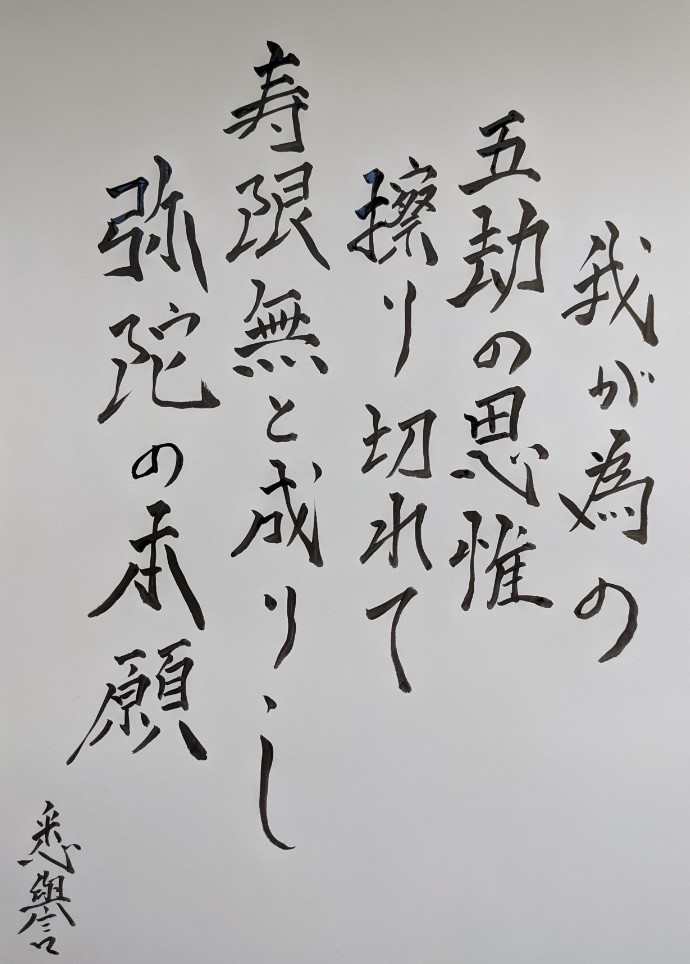 我が為の
五劫の思惟
擦り切れて
寿限無と成りし
弥陀の本願
悉譽